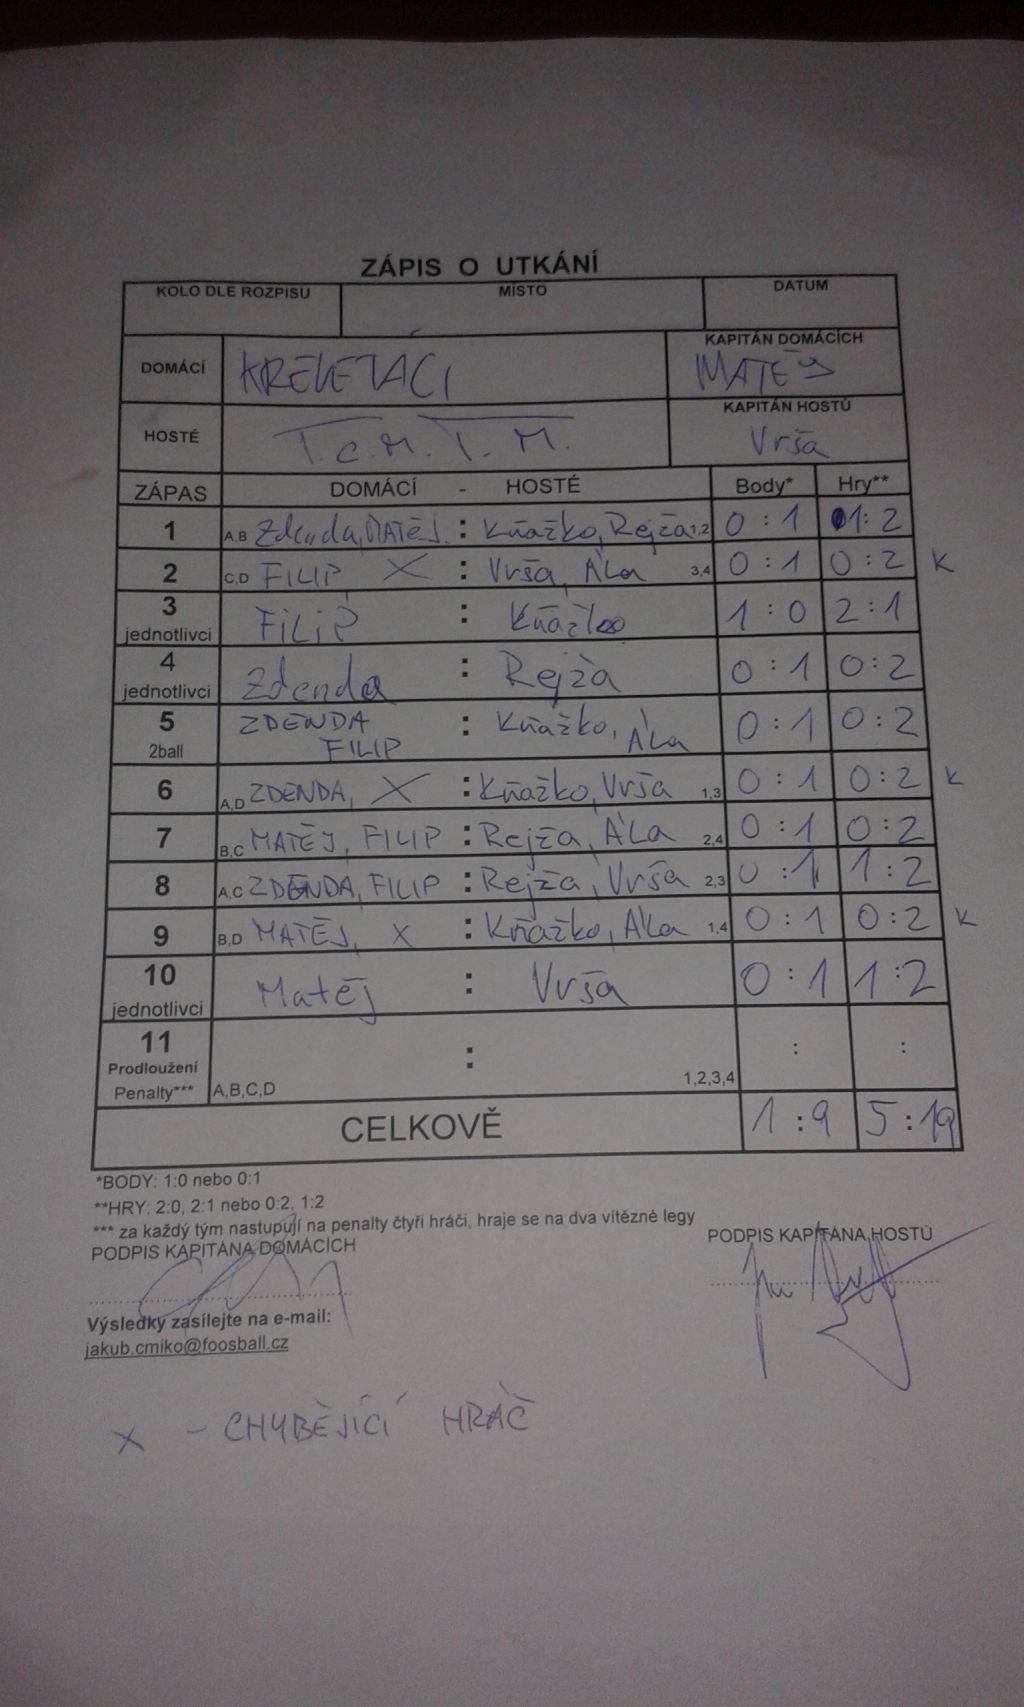 ZÁPIS O UTKÁNÍ
KOLO DLE ROZPISU MÍSTO DATUM
DOMÁCÍ KREVETÁCI KAPITÁN DOMÁCÍCH MATĚJ
HOSTÉ T.c.M.T.M. KAPITÁN HOSTŮ Vrša
ZÁPAS DOMÁCÍ - HOSTÉ Body* Hry**
1 A,B Zdenda, MATĚJ : Kňažko, Rejža 1,2 0:1 1:2
2 C,D FILIP X : Vrša, ÁLa 3,4 0:1 0:2 K
3 jednotlivci FILIP : Kňažko 1:0 2:1
4 jednotlivci Zdenda : Rejža 0:1 0:2
5 2ball ZDENDA FILIP : Kňažko, ÁLa 0:1 0:2
6 A,D ZDENDA, X : Kňažko, Vrša 1,3 0:1 0:2 K
7 B,C MATĚJ, FILIP : Rejža, ÁLa 2,4 0:1 0:2
8 A,C ZDENDA, FILIP : Rejža, Vrša 2,3 0:1 1:2
9 B,D MATĚJ, X : Kňažko, ÁLa 1,4 0:1 0:2 K
10 jednotlivci Matěj : Vrša 0:1 1:2
11 Prodloužení : : :
Penalty*** A,B,C,D 1,2,3,4
CELKOVĚ 1:9 5:19
*BODY: 1:0 nebo 0:1
**HRY: 2:0, 2:1 nebo 0:2, 1:2
*** za každý tým nastupují na penalty čtyři hráči, hraje se na dva vítězné legy
PODPIS KAPITÁNA DOMÁCÍCH PODPIS KAPITÁNA HOSTŮ
Výsledky zasílejte na e-mail:
jakub.cmiko@foosball.cz
X - CHYBĚJÍCÍ HRÁČ